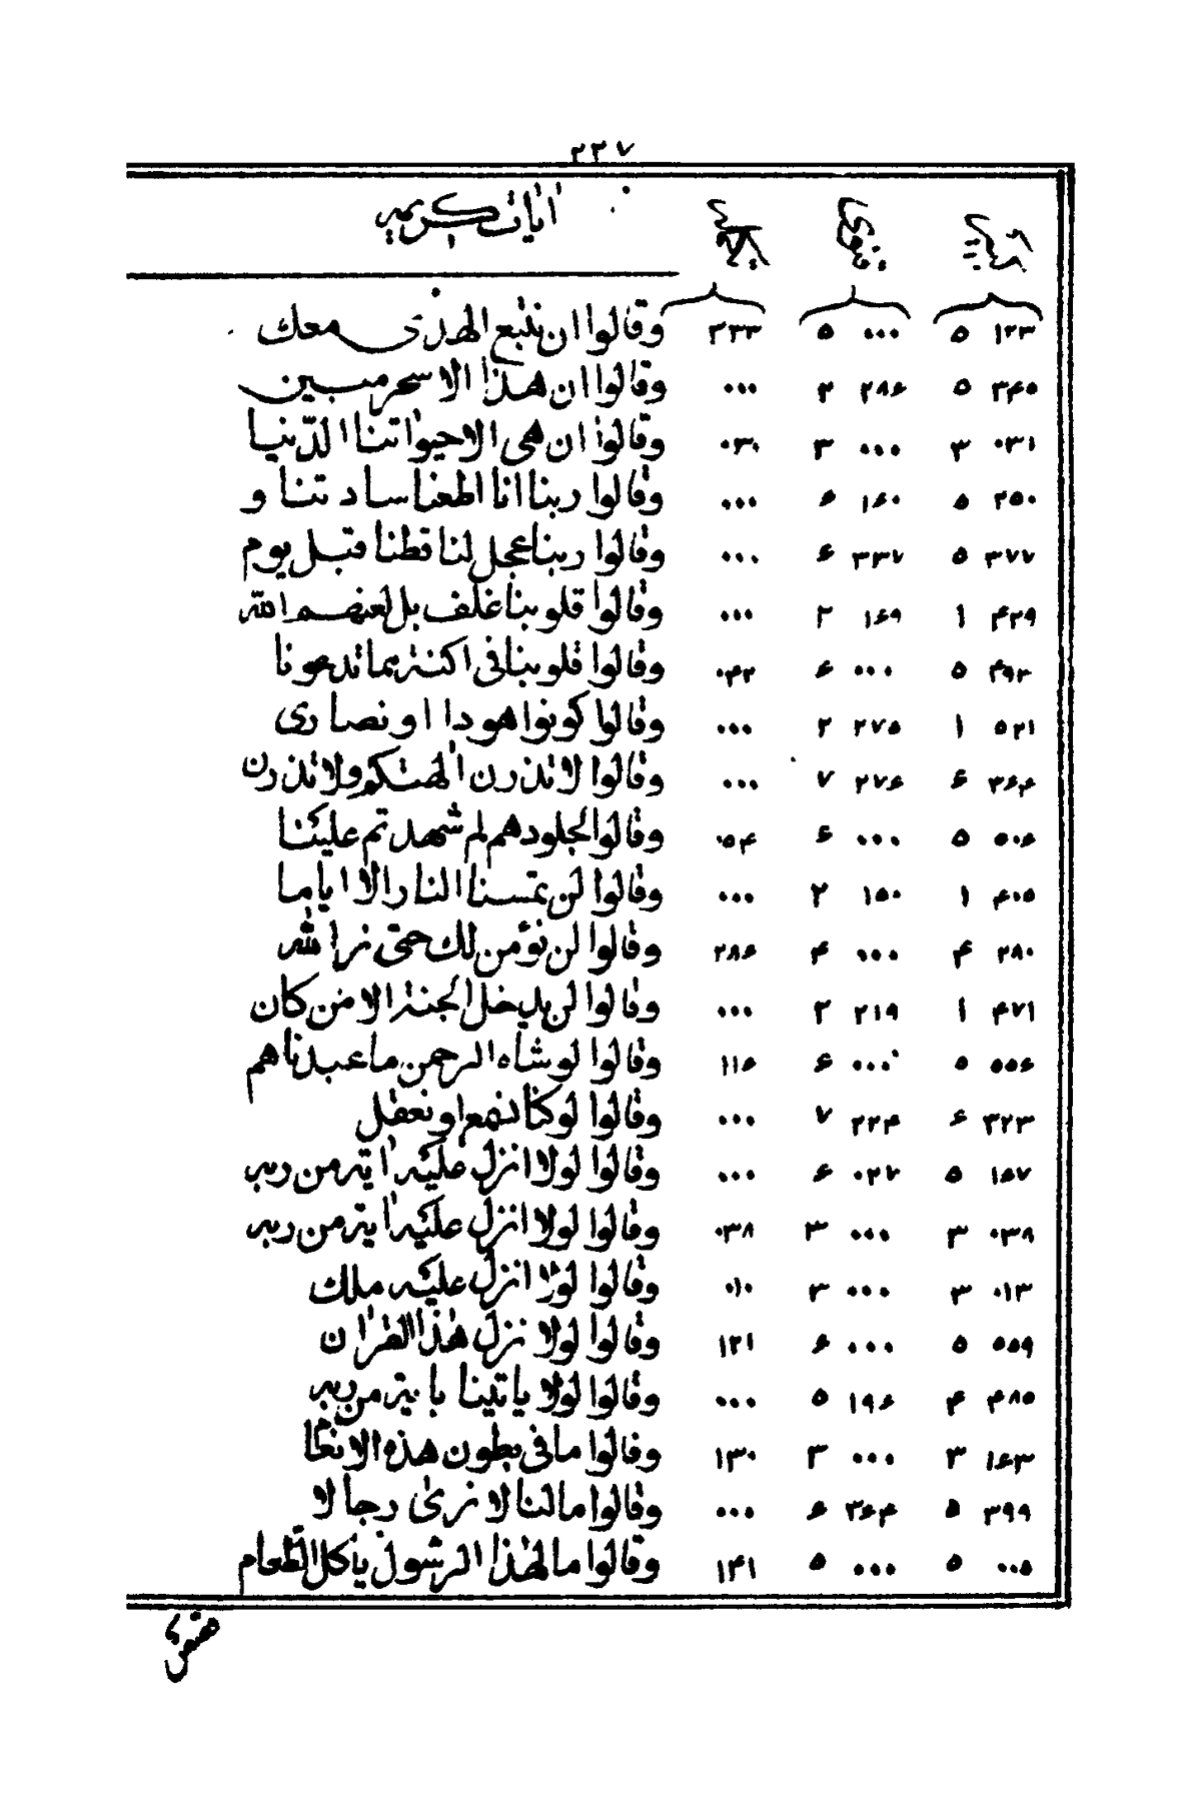 ٢٢٧
اٰيات كريمه
١٢٣ ٥ ٠٠٠ ٥ ٣٣٣ وقالوا ان نتبع الهدى معك
٣۴٥ ٥ ٢٨۶ ٢ ٠٠٠ وقالوا ان هذا الا سحر مبين
٠٣١ ٣ ٠٠٠ ٣ ٠٣٠ وقالوا ان هى الا حيواتنا الدّنيا
٢٥٠ ٥ ١۶٠ ۶ ٠٠٠ وقالوا ربنا انا اطعنا سادتنا و
٣٧٧ ٥ ٣٣٧ ۶ ٠٠٠ وقالوا ربنا عجل لنا قطنا قبل يوم
۴٢٩ ١ ١۶٩ ٢ ٠٠٠ وقالوا قلوبنا غلف بل لعنهم الله
۴٩٣ ٥ ٠٠٠ ۶ ٠۴٢ وقالوا قلوبنا فى اكنة مما تدعونا
٥٢١ ١ ٢٧٥ ٢ ٠٠٠ وقالوا كونوا هودا او نصارى
٣۶۴ ۶ ٢٧۶ ٧ ٠٠٠ وقالوا لا تذرن اٰلهتكم ولا تذرن
٥٠۶ ٥ ٠٠٠ ۶ ٠٥۴ وقالوا لجلودهم لم شهدتم علينا
۴٠٥ ١ ١٥٠ ٢ ٠٠٠ وقالوا لن تمسنا النار الا اياما
٢٨٠ ۴ ٠٠٠ ۴ ٢٨۶ وقالوا لن نؤمن لك حتى نرا لله
۴٧١ ١ ٢١٩ ٢ ٠٠٠ وقالوا لن يدخل الجنة الا من كان
٥٥۶ ٥ ٠٠٠ ۶ ١١۶ وقالوا لو شاء الرحمن ما عبدناهم
٣٢٣ ۶ ٢٢۴ ٧ ٠٠٠ وقالوا لو كنا نسمع او نعقل
١۶٧ ٥ ٠٢٧ ۶ ٠٠٠ وقالوا لولا انزل عليه اٰية من ربه
٠٣٨ ٣ ٠٠٠ ٣ ٠٣٨ وقالوا لولا انزل عليه اٰية من ربه
٠١٣ ٣ ٠٠٠ ٣ ٠١٠ وقالوا لولا انزل عليه ملك
٥٥٩ ٥ ٠٠٠ ۶ ١٢١ وقالوا لولا نزل هٰذا القراٰن
۴٨٥ ۴ ١٩۶ ٥ ٠٠٠ وقالوا لولا ياتينا باية من ربه
١۶٣ ٣ ٠٠٠ ٣ ١٣٠ وقالوا ما فى بطون هذه الانعام
٣٩٩ ٥ ٣۶۴ ۶ ٠٠٠ وقالوا مالنا لا نرىٰ رجالا
٠٠٥ ٥ ٠٠٠ ٥ ١۴١ وقالوا مال هٰذا الرسول ياكل الطعام